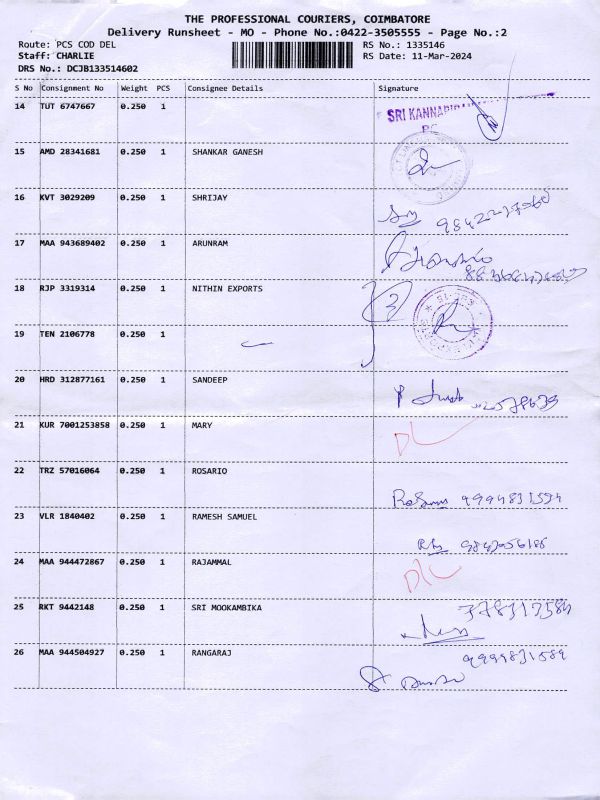 THE PROFESSIONAL COURIERS, COIMBATORE
Delivery Runsheet - MO - Phone No.:0422-3505555 - Page No.:2
Route: PCS COD DEL RS No.: 1335146
Staff: CHARLIE RS Date: 11-Mar-2024
DRS No.: DCJB133514602
S No Consignment No Weight PCS Consignee Details Signature
14 TUT 6747667 0.250 1 SRI KANNAPIRAN
15 AMD 28341681 0.250 1 SHANKAR GANESH
16 KVT 3029209 0.250 1 SHRIJAY
17 MAA 943689402 0.250 1 ARUNRAM
18 RJP 3319314 0.250 1 NITHIN EXPORTS
19 TEN 2106778 0.250 1
20 HRD 312877161 0.250 1 SANDEEP
21 KUR 7001253858 0.250 1 MARY D/L
22 TRZ 57016064 0.250 1 ROSARIO 9994831594
23 VLR 1840402 0.250 1 RAMESH SAMUEL
24 MAA 944472867 0.250 1 RAJAMMAL D/L
25 RKT 9442148 0.250 1 SRI MOOKAMBIKA
26 MAA 944504927 0.250 1 RANGARAJ 9999831589